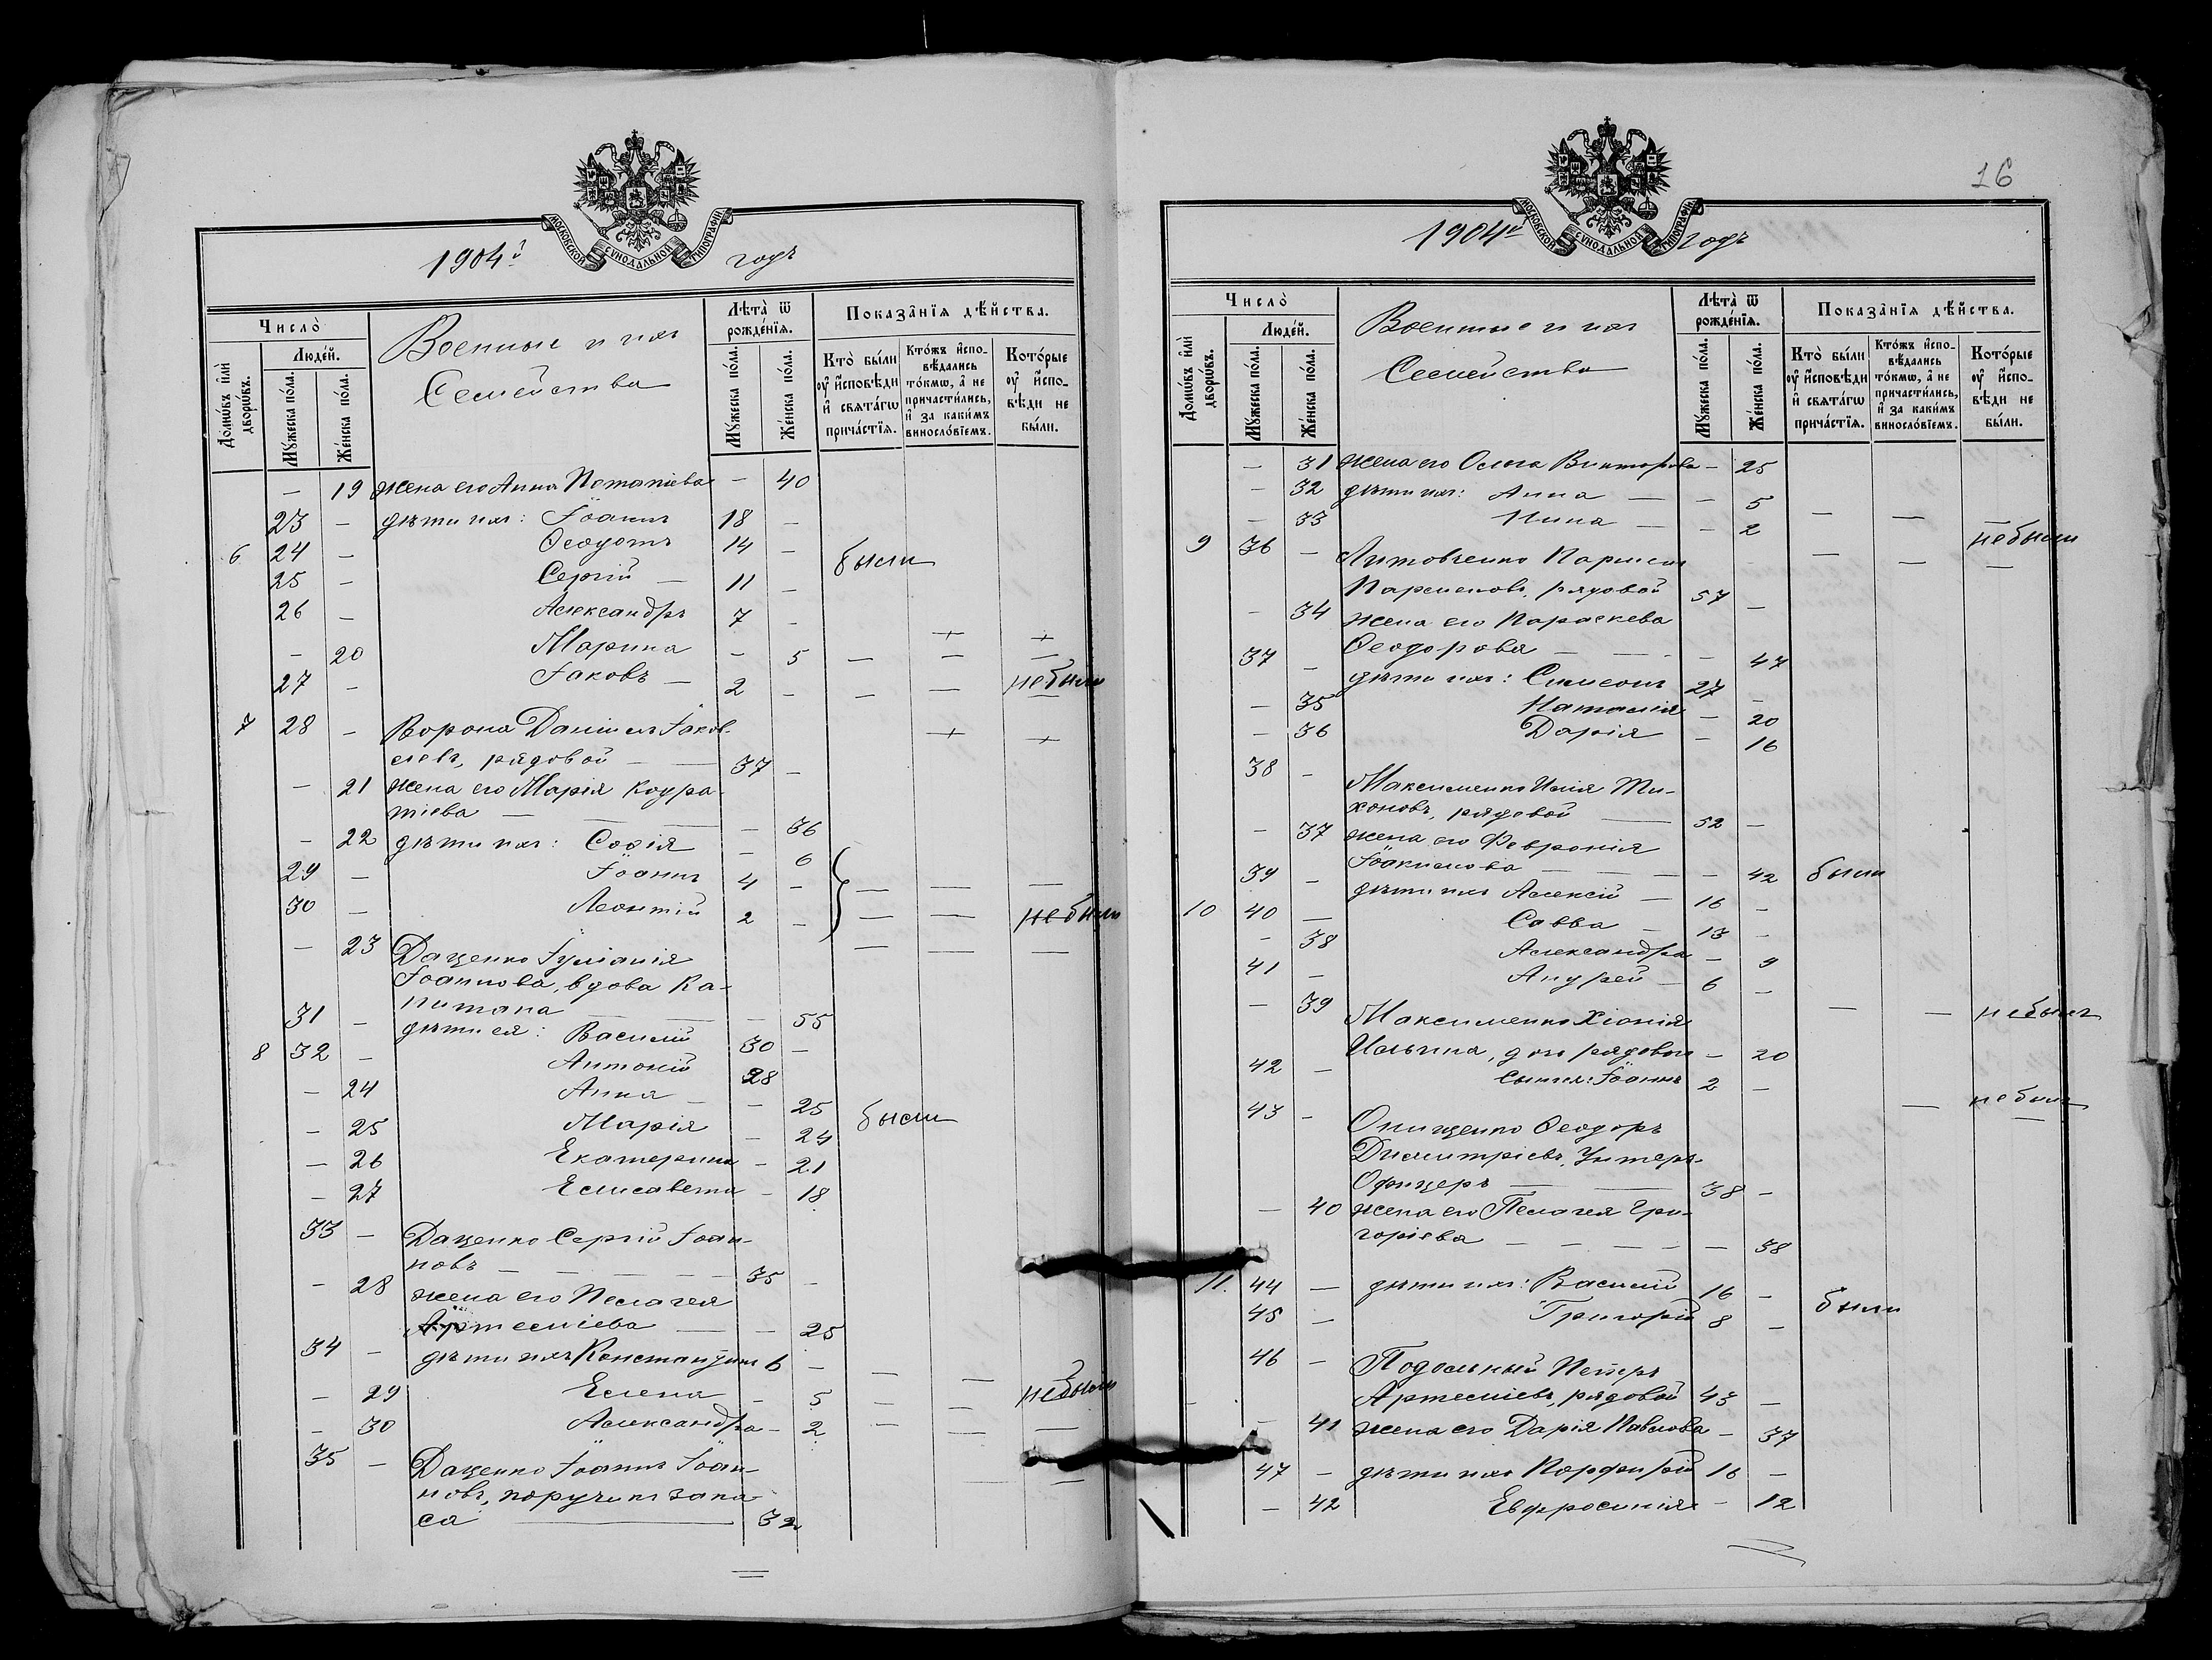 МОСКОВСКОЙ СѴНОДАЛЬНОЙ ТИПОГРАФІИ
1904й годъ
Число̀
Домѡ́въ и҆лѝ дворѡ́въ.
Люде́й.
Мꙋ́жеска по́ла.
Же́нска по́ла.
Военные и ихъ
Семейства
Лѣта̀ ѿ рожде́нїѧ.
Мꙋ́жеска по́ла.
Же́нска по́ла.
Показа̑нїѧ дѣ́йства.
Кто̀ бы́ли ᲂу҆ и҆сповѣди и҆ свѧта́гѡ прича́стїѧ.
Кто́жъ и҆сповѣ́дались то́кмѡ, а҆ не причасти́лись, и҆ за каки́мъ винослов́їемъ.
Кото́рые ᲂу҆ и҆сповѣди не бы́ли.
— 19 жена его Анна Потапіева — 40
23 — дѣти ихъ: Іоаннъ 18 —
6 24 — Ѳеодотъ 14 — были
25 — Сергій — 11 —
26 — Александръ 7 —
— 20 Марина — 5 — — —
27 — Іаковъ — 2 — — — небыли
7 28 — Ворона Даніилъ Іаков-
левъ, рядовой — — 37 —
— 21 жена его Марія Кодра-
тіева — — — — 36
— 22 дѣти ихъ: Софія — 6
29 — Іоаннъ 4 — — — —
30 — Леонтій 2 — — — небыли
— 23 Даценко Іуліанія
Іоаннова, вдова Ка-
питана — — — 55
31 — дѣти ея: Василій 30 —
8 32 — Антоній 28
— 24 Анна — — 25
— 25 Марія — 24 были
— 26 Екатерина — 21
— 27 Елисавета — 18
33 — Даценко Сергій Іоан-
новъ — — — — 35 —
— 28 жена его Пелагея
Артеміева — — 25
34 — дѣти ихъ Константинъ 6 — — —
— 29 Елена — 5 — — небыли
— 30 Александра — 2 — — —
35 — Даценко Іоаннъ Іоан-
новъ, поручикъ запа-
са — 32
16
МОСКОВСКОЙ СѴНОДАЛЬНОЙ ТИПОГРАФІИ
1904й годъ
Число̀
Домѡ́въ и҆лѝ дворѡ́въ.
Люде́й.
Мꙋ́жеска по́ла.
Же́нска по́ла.
Военные и ихъ
Семейства
Лѣта̀ ѿ рожде́нїѧ.
Мꙋ́жеска по́ла.
Же́нска по́ла.
Показа̑нїѧ дѣ́йства.
Кто̀ бы́ли ᲂу҆ и҆сповѣди и҆ свѧта́гѡ прича́стїѧ.
Кто́жъ и҆сповѣ́дались то́кмѡ, а҆ не причасти́лись, и҆ за каки́мъ винослов́їемъ.
Кото́рые ᲂу҆ и҆сповѣди не бы́ли.
— 31 жена его Ольга Викторова — 25
— 32 дѣти ихъ: Анна — — 5 — — —
— 33 Нина — — 2 — — небыли
9 36 — Литовченко Пармен
Парменовъ, рядовой 57 —
— 34 жена его Параскева
Ѳеодорова — — — — 47
37 — дѣти ихъ: Симеонъ 27 —
— 35 Наталія — 20
— 36 Дарія — 16
38 — Максименко Илія Ти-
хоновъ, рядовой — 52 —
— 37 жена его Феврония
Іоакимова — — — — 42 были
39 — дѣти ихъ Алексій — 16 —
10 40 — Савва — 13 —
— 38 Александра — 9
41 — Андрей — 6 —
— 39 Максименко Хіонія — — небыла
Ильина, дочь рядовой — 20
42 — сынъ ея: Іоаннъ 2 — — небылъ
43 — Онищенко Ѳеодоръ
Димитріевъ, Унтеръ-
Офицеръ — — 38 —
— 40 жена его Пелагея Гри-
горіева — — — — — 38
11. 44 — дѣти ихъ: Василій 16 — были
45 — Григорій 8 —
46 — Подольный Петръ
Артеміевъ, рядовой 43 —
— 41 жена его Дарія Павлова — 37
47 — дѣти ихъ Порфирій 16 —
— 42 Евфросинія — 12